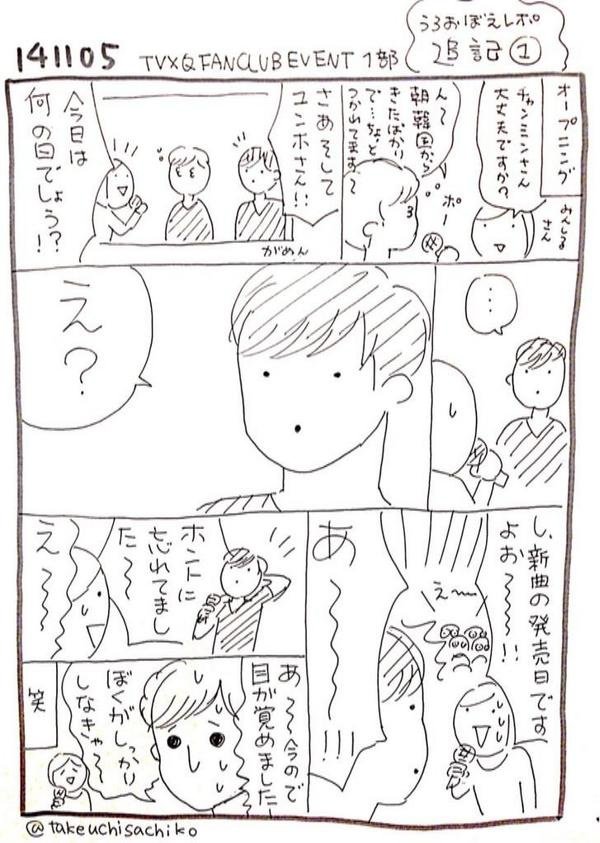 うろおぼえレポ
追記①
141105 TVXQ FANCLUB EVENT 1部
オープニング
みんしるさん
チャンミンさん
大丈夫ですか?
ん〜
朝韓国から
きたばかり
で…ちょっと
つかれてます〜
ポー
さあそして
ユンホさん!!
今日は
何の日でしょう?!
がめん
…
え?
し、新曲の発売日です
よお〜〜〜!!
え〜
あ
〜〜!!!
ホントに
忘れてまし
た〜〜
え〜〜
あ〜〜今ので
目が覚めました
ぼくがしっかり
しなきゃ〜
笑
@takeuchisachiko